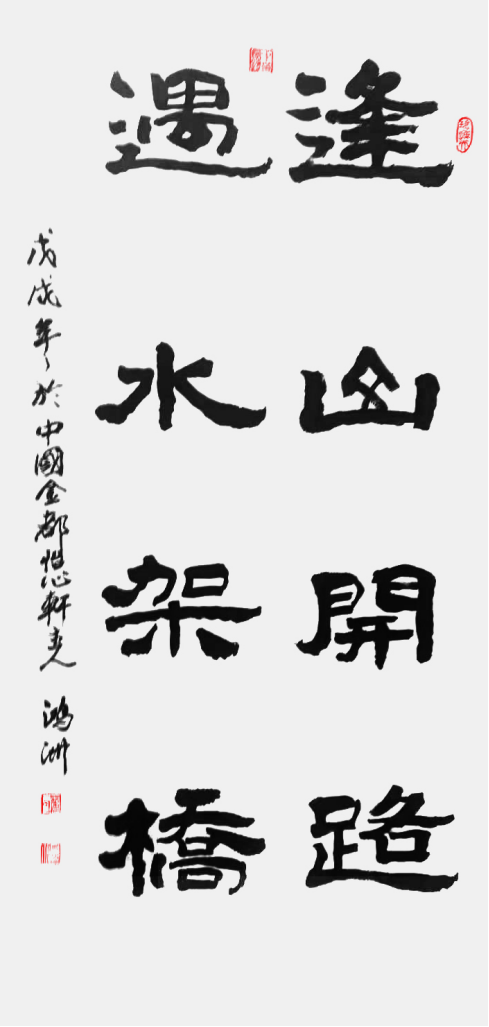 逢山開路
遇水架橋
戊戌年於中國金都 軒主人 鴻洲